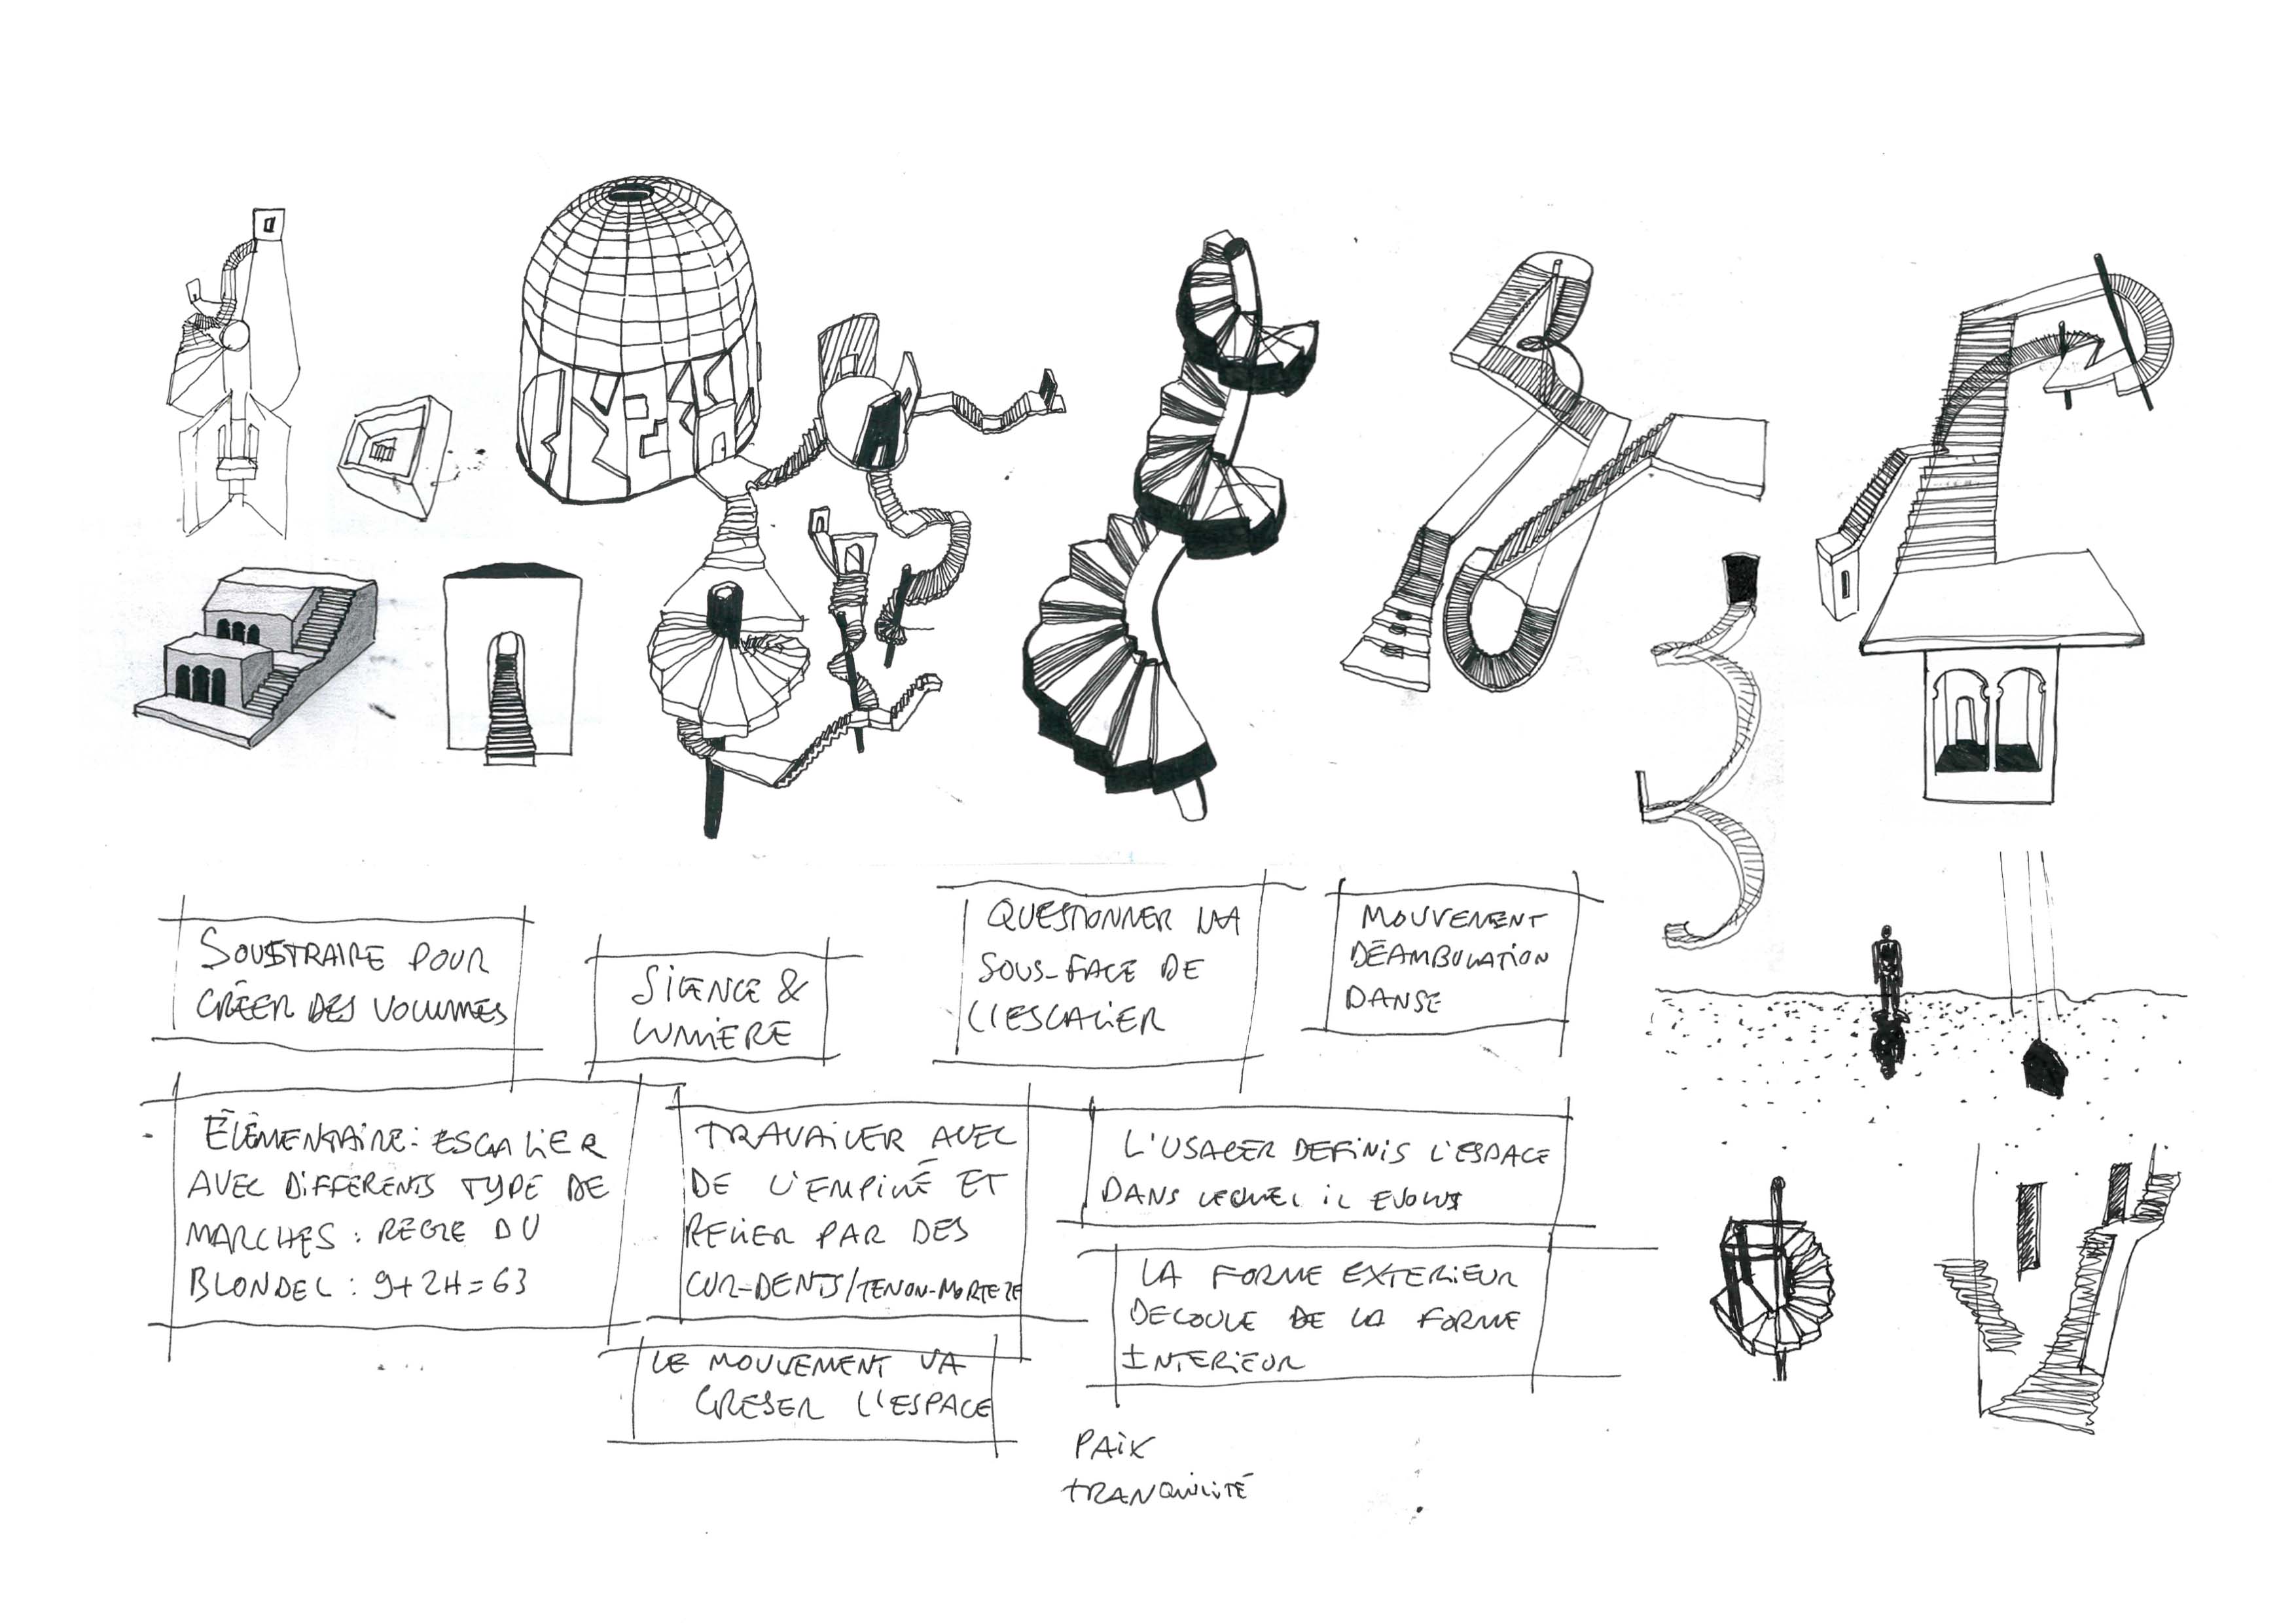 SOUSTRAIRE POUR
CRÉER DES VOLUMES
SILENCE &
LUMIERE
QUESTIONNER LA
SOUS-FACE DE
L'ESCALIER
MOUVEMENT
DÉAMBULATION
DANSE
ÉLÉMENTAIRE: ESCALIER
AVEC DIFFÉRENTS TYPE DE
MARCHES: REGLE DU
BLONDEL: g+2H=63
TRAVAILLER AVEC
DE L'EMPILÉ ET
RELIER PAR DES
CUR-DENTS/TENON-MORTEZE
L'USAGER DEFINIS L'ESPACE
DANS LEQUEL IL EVOLUE
LE MOUVEMENT VA
CREUSER L'ESPACE
LA FORME EXTERIEUR
DECOULE DE LA FORME
INTERIEUR
PAIX
TRANQUILITÉ